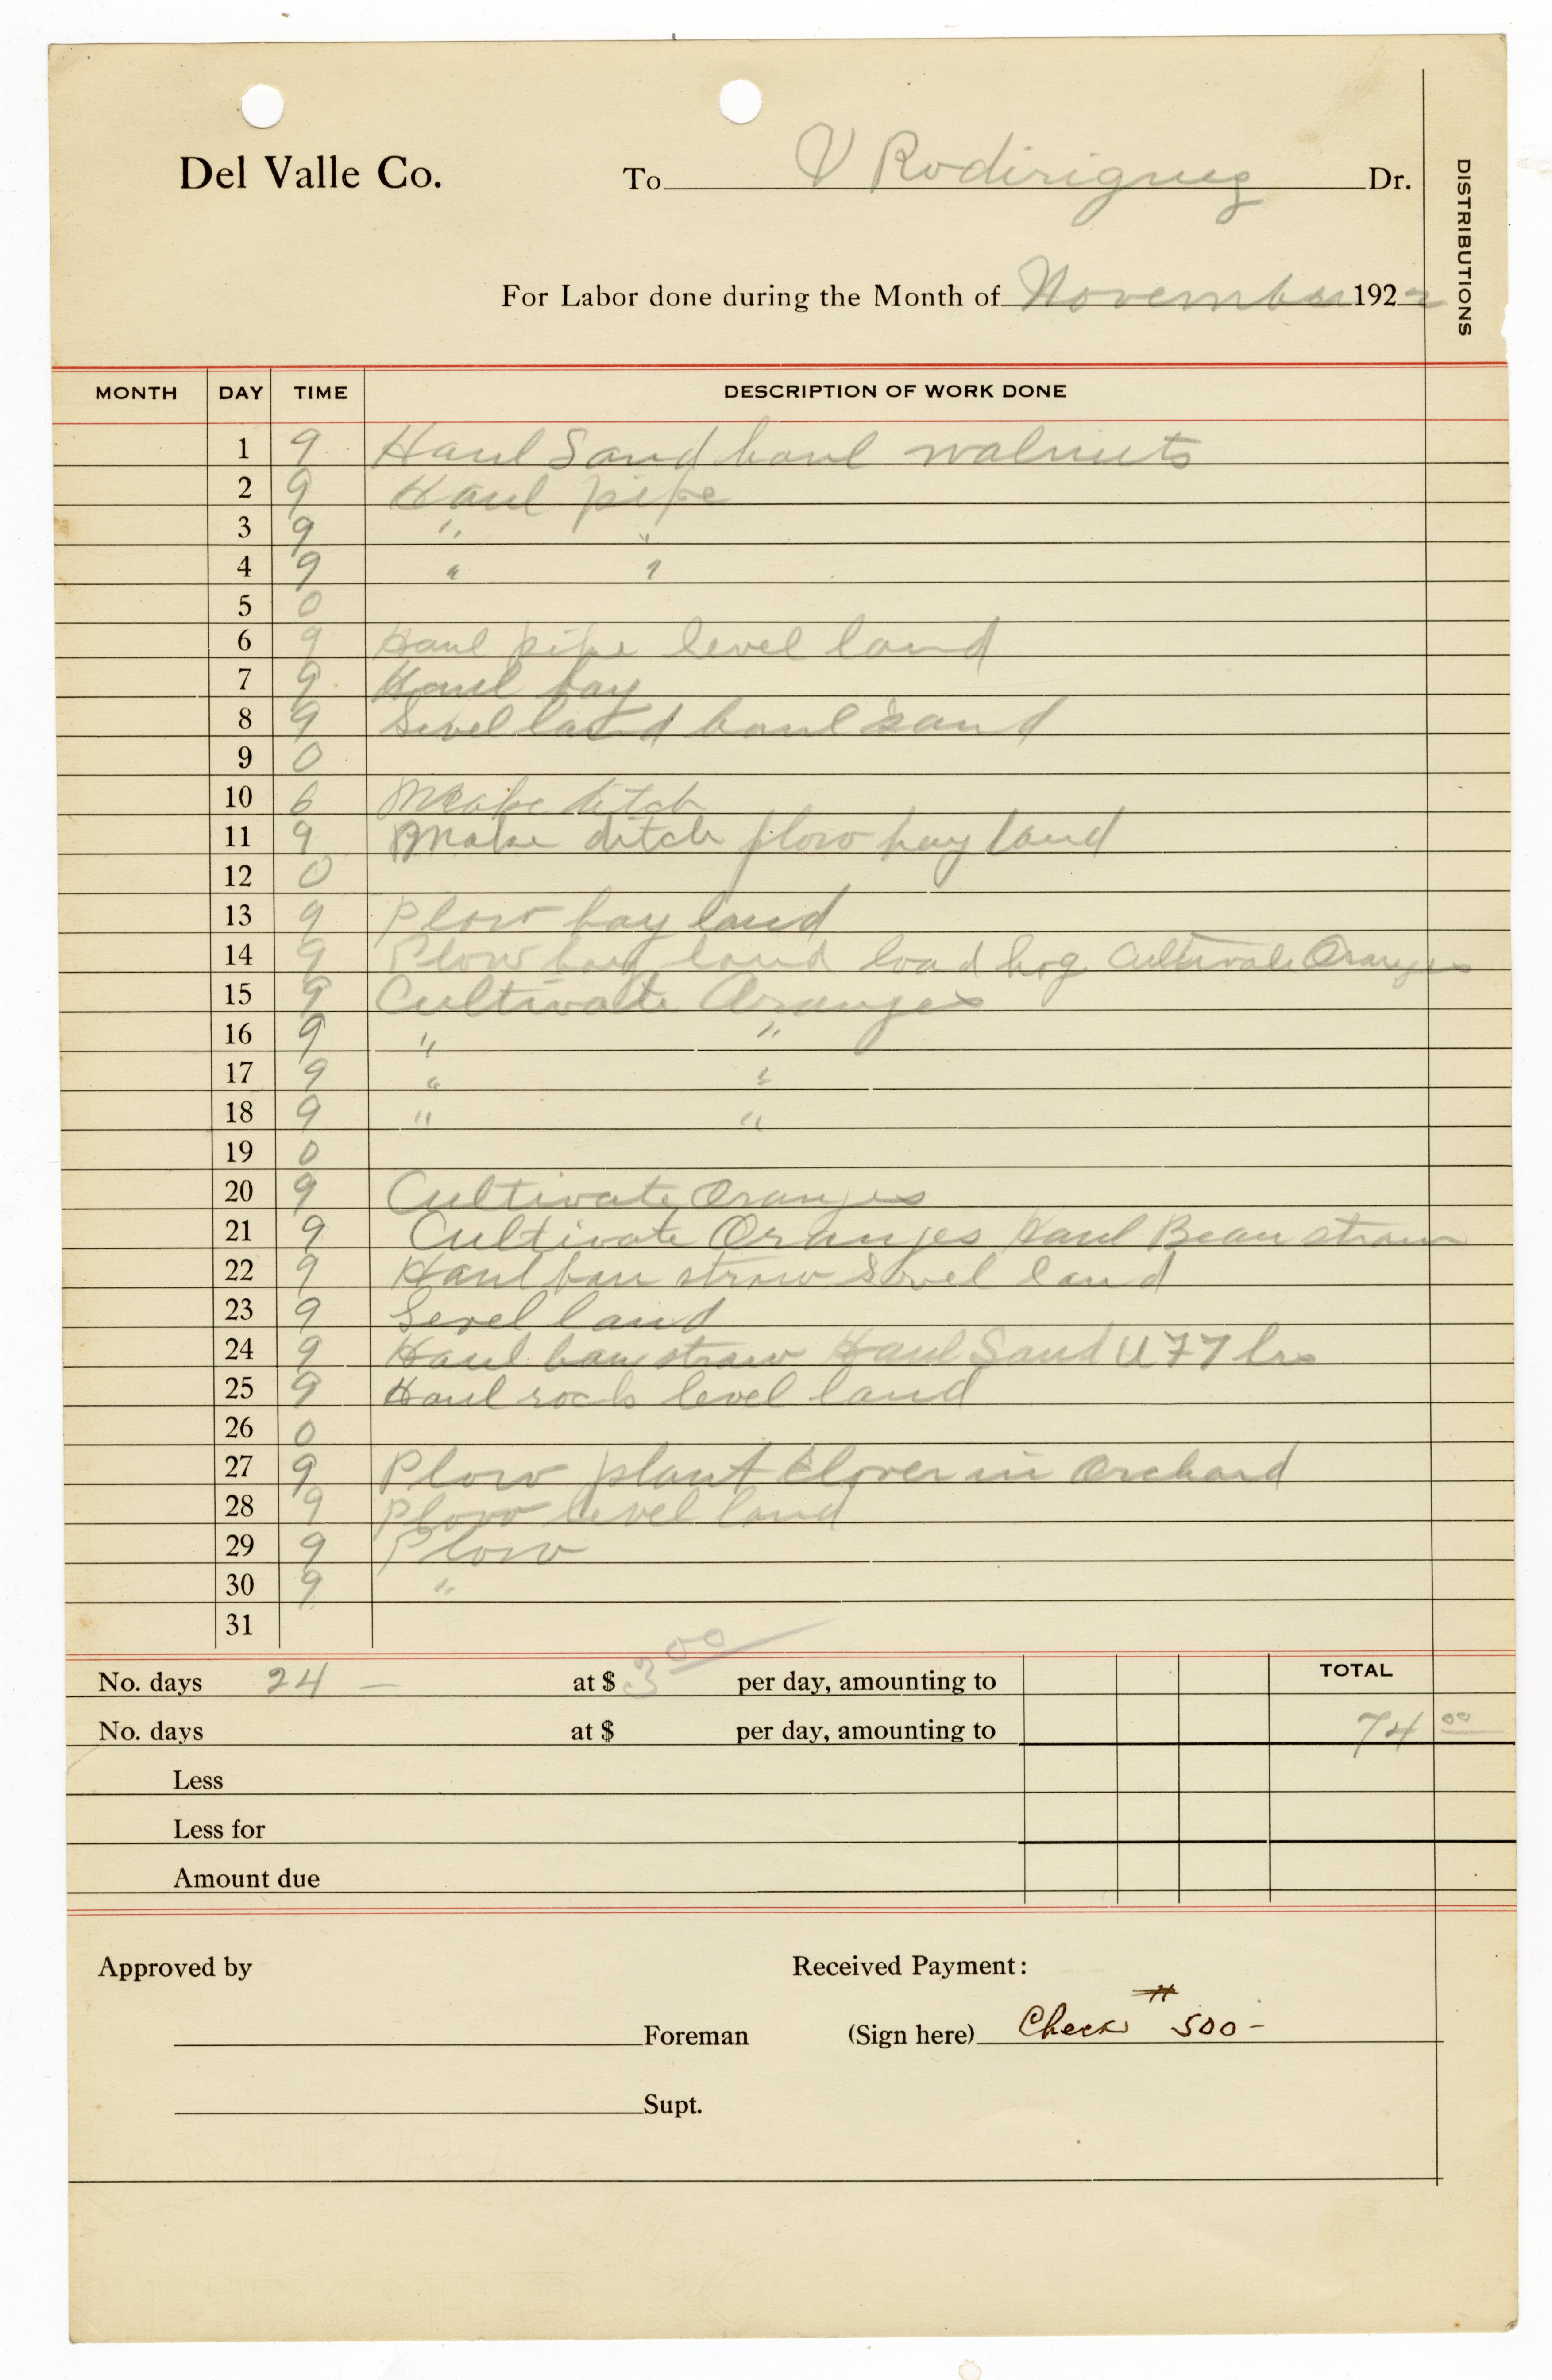 Del Valle Co. To V Rodiriguez Dr.
DISTRIBUTIONS
For Labor done during the Month of November 1922
MONTH DAY TIME DESCRIPTION OF WORK DONE
1 9 Haul Sand haul walnuts
2 9 Haul pipe
3 9 " "
4 9 " "
5 0
6 9 Haul pipe level land
7 9 Haul hay
8 9 Level land haul sand
9 0
10 6 Make ditch
11 9 Make ditch plow hay land
12 0
13 9 Plow hay land
14 9 Plow hay land load hog Cultivate Oranges
15 9 Cultivate Oranges
16 9 " "
17 9 " "
18 9 " "
19 0
20 9 Cultivate Oranges
21 9 Cultivate Oranges Haul Bean straw
22 9 Haul bean straw Level land
23 9 Level land
24 9 Haul bean straw Haul Sand 7 hrs
25 9 Haul rock level land
26 0
27 9 Plow plant Clover in Orchard
28 9 Plow level land
29 9 Plow
30 9 "
31
No. days 24 — at $ 3 00 per day, amounting to TOTAL
No. days at $ per day, amounting to 74 00
Less
Less for
Amount due
Approved by Received Payment:
Foreman (Sign here) Check # 500 -
Supt.